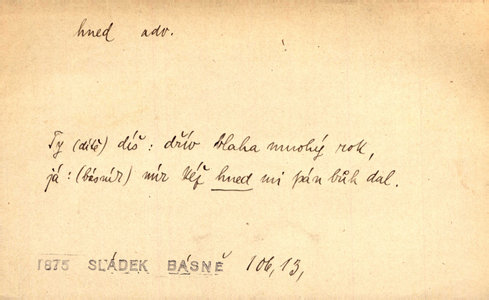 hned adv.
Ty (dítě) díš: dřív blaha mnohý rok,
já: (básník) mír též hned mi pán bůh dal.
1875 SLÁDEK BÁSNĚ 106,13,